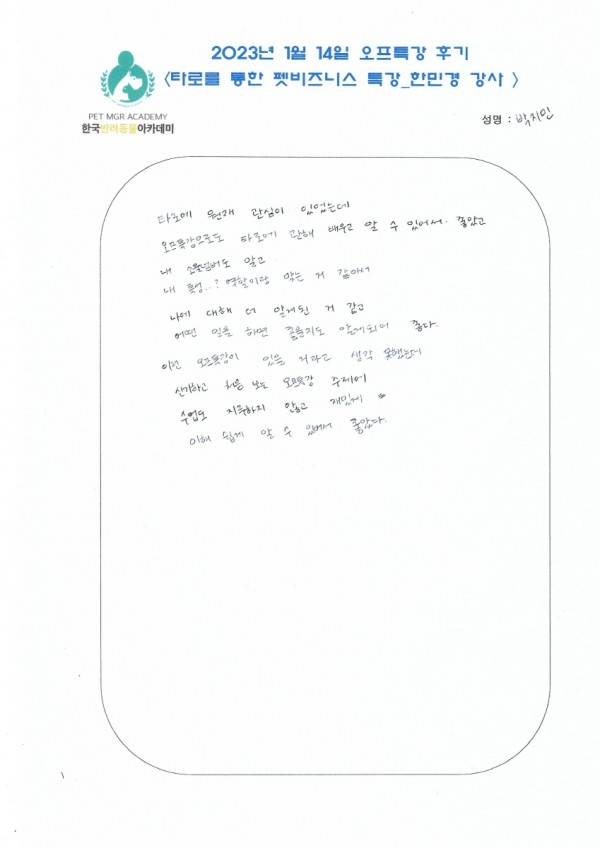 2023년 1월 14일 오프특강 후기
<타로를 통한 펫비즈니스 특강_한민경 강사 >
PET MGR ACADEMY
한국반려동물아카데미
성명 : 박지인
타로에 원래 관심이 있었는데
오프특강으로도 타로에 관해 배우고 알 수 있어서 좋았고
내 소울넘버도 알고
내 특성..? 역할이랑 맞는 거 같아서
나에 대해 더 알게된 거 같고
어떤 일을 하면 좋을지도 알게되어 좋다.
이런 오프특강이 있을 거라고 생각 못했는데
신기하고 처음 보는 오프특강 주제에
수업도 지루하지 않고 재밌게
이해 쉽게 알 수 있어서 좋았다.